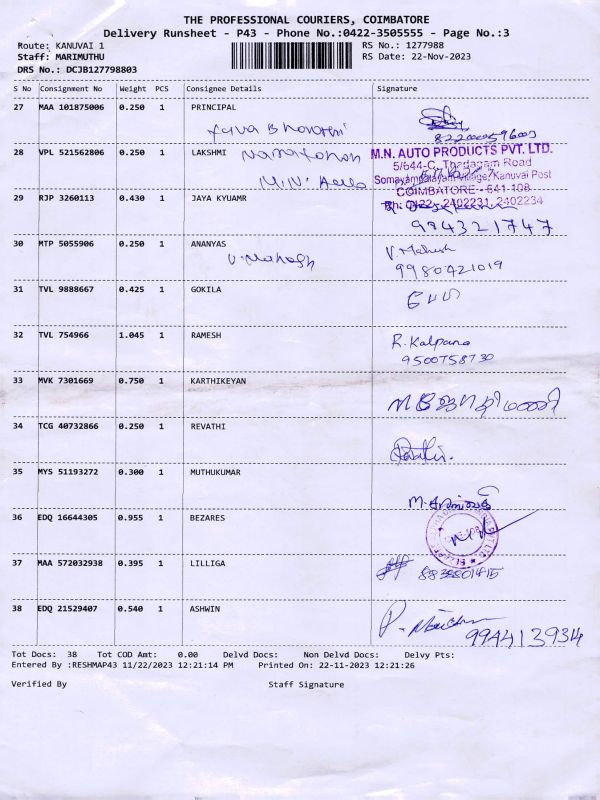 THE PROFESSIONAL COURIERS, COIMBATORE
Delivery Runsheet - P43 - Phone No.:0422-3505555 - Page No.:3
Route: KANUVAI 1 RS No.: 1277988
Staff: MARIMUTHU RS Date: 22-Nov-2023
DRS No.: DCJB127798803
S No Consignment No Weight PCS Consignee Details Signature
27 MAA 101875006 0.250 1 PRINCIPAL
28 VPL 521562806 0.250 1 LAKSHMI
M.N. AUTO PRODUCTS PVT. LTD.
5/644-C, Thadagam Road
Somayampalayam Village, Kanuvai Post
COIMBATORE - 641 108.
Ph: 0422- 2402231, 2402234
29 RJP 3260113 0.430 1 JAYA KYUAMR
994321747
30 MTP 5055906 0.250 1 ANANYAS V.Mahesh
V.Mahesh
9980421019
31 TVL 9888667 0.425 1 GOKILA
32 TVL 754966 1.045 1 RAMESH R. Kalpana
9500758730
33 MVK 7301669 0.750 1 KARTHIKEYAN
34 TCG 40732866 0.250 1 REVATHI
35 MYS 51193272 0.300 1 MUTHUKUMAR
36 EDQ 16644305 0.955 1 BEZARES
37 MAA 572032938 0.395 1 LILLIGA
38 EDQ 21529407 0.540 1 ASHWIN
Tot Docs: 38 Tot COD Amt: 0.00 Delvd Docs: Non Delvd Docs: Delvy Pts:
Entered By :RESHMAP43 11/22/2023 12:21:14 PM Printed On: 22-11-2023 12:21:26
Verified By Staff Signature